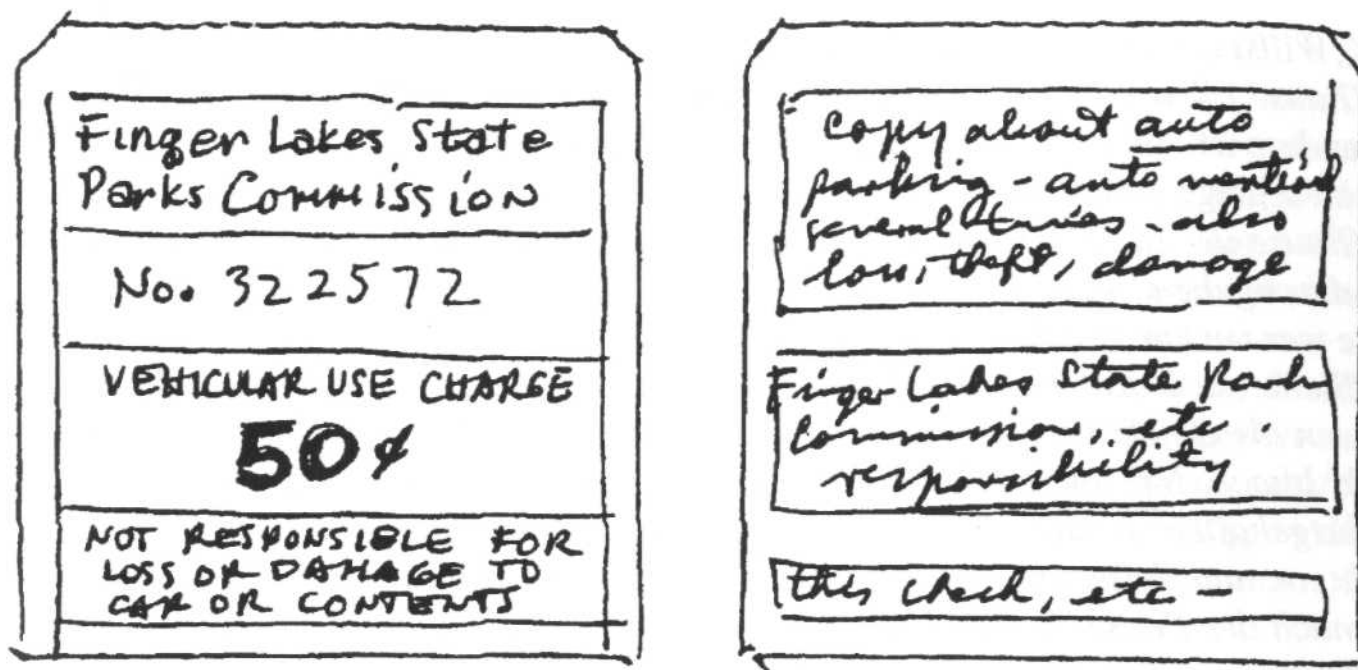 Finger Lakes State
Parks Commission
No. 322572
VEHICULAR USE CHARGE
50¢
NOT RESPONSIBLE FOR
LOSS OR DAMAGE TO
CAR OR CONTENTS
Copy about auto
parking - auto mentioned
several times - also
loss, theft, damage
Finger Lakes State Park
Commission, etc.
responsibility
this check, etc -